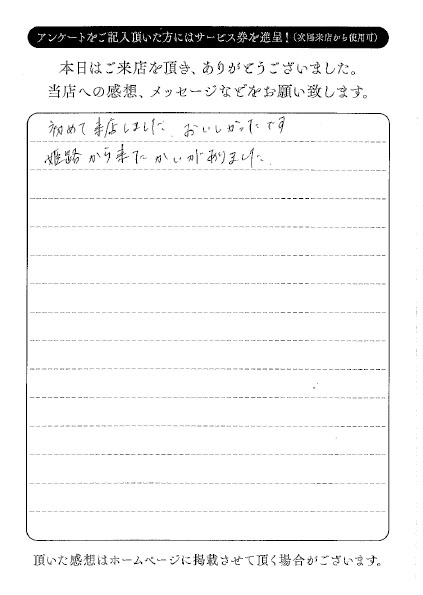 アンケートをご記入頂いた方にはサービス券を進呈！(次回来店から使用可)
本日はご来店を頂き、ありがとうございました。
当店への感想、メッセージなどをお願い致します。
初めて来店しました。おいしかったです
姫路から来たかいがありました。
頂いた感想はホームページに掲載させて頂く場合がございます。